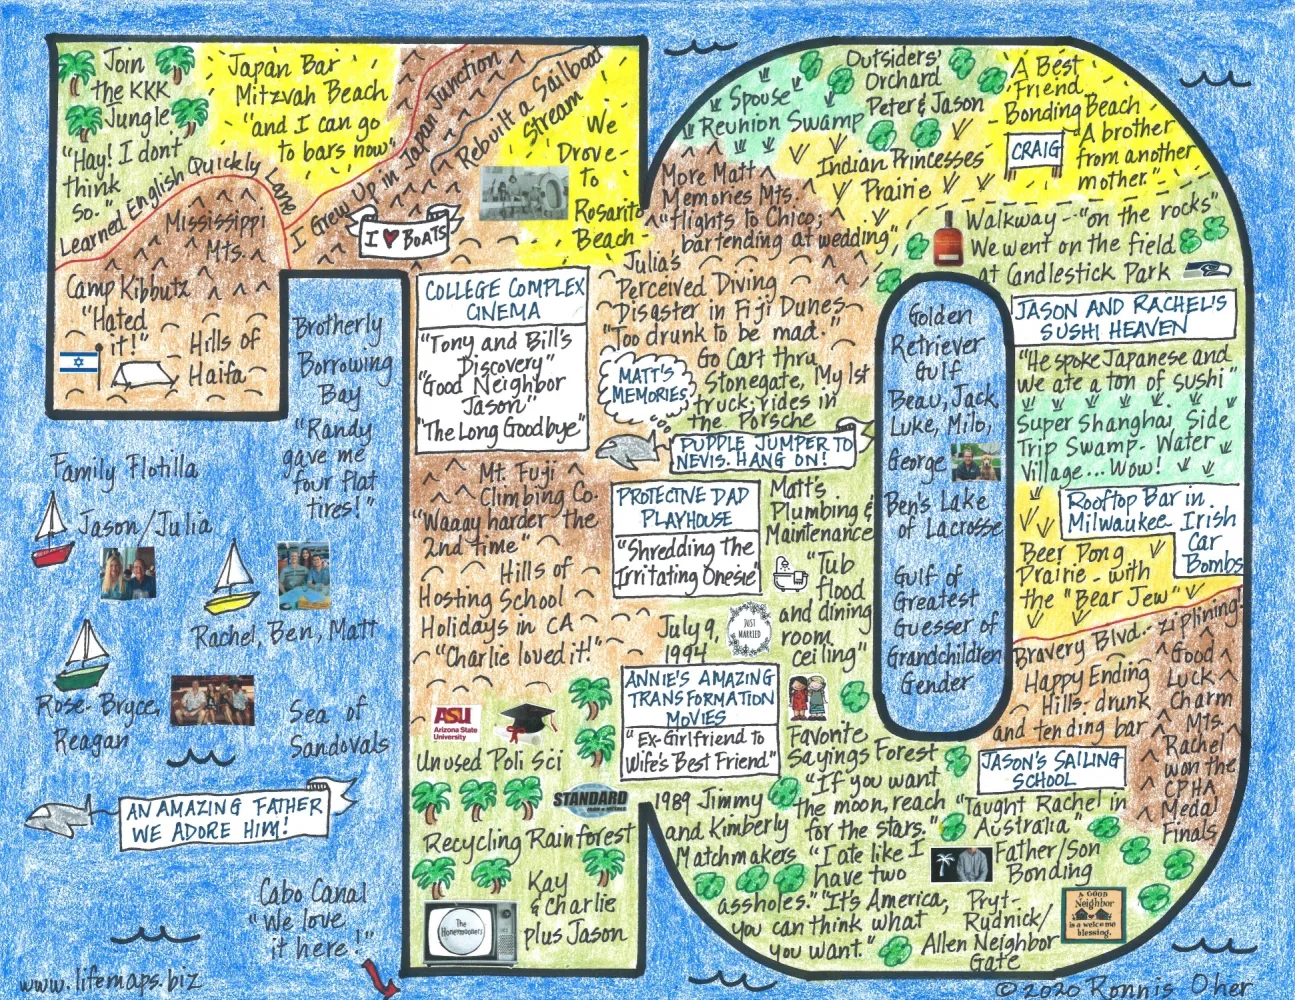 Join
the KKK
Jungle
"Hay! I don't
think
so."
Japan Bar
Mitzvah Beach
"and I can go
to bars now"
Learned English Quickly Lane
I Grew Up in Japan Junction
Rebuilt a Sailboat
Stream
We
Drove
To
Rosarito
Beach
I ♥ BOATS
Mississippi
Mts.
Camp Kibbutz
"Hated
it!"
Hills of
Haifa
Brotherly
Borrowing
Bay
"Randy
gave me
four flat
tires!"
Family Flotilla
Jason/Julia
Rachel, Ben, Matt
Rose, Bryce,
Reagan
Sea of
Sandovals
AN AMAZING FATHER
WE ADORE HIM!
Cabo Canal
"We love
it here!"
www.lifemaps.biz
COLLEGE COMPLEX
CINEMA
"Tony and Bill's
Discovery"
"Good Neighbor
Jason"
"The Long Goodbye"
Mt. Fuji
Climbing Co.
"Waaay harder the
2nd time"
Hills of
Hosting School
Holidays in CA
"Charlie loved it!"
ASU
Arizona State
University
Unused Poli Sci
STANDARD
Recycling Rainforest
The
Honeymooners
Kay
& Charlie
plus Jason
Spouse
Reunion Swamp
Outsiders'
Orchard
Peter & Jason
A Best
Friend
Bonding Beach
CRAIG
"A brother
from another
mother."
Indian Princesses
Prairie
More Matt
Memories Mts.
"flights to Chico;
bartending at wedding"
Walkway - "on the rocks"
We went on the field
at Candlestick Park
Julia's
Perceived Diving
Disaster in Fiji Dunes
"Too drunk to be mad."
MATT'S
MEMORIES
Go Cart thru
Stonegate, My 1st
truck; rides in
the Porsche
PUDDLE JUMPER TO
NEVIS. HANG ON!
PROTECTIVE DAD
PLAYHOUSE
"Shredding The
Irritating Onesie"
Matt's
Plumbing &
Maintenance
"Tub
flood
and dining
room
ceiling"
July 9,
1994
JUST
MARRIED
ANNIE'S AMAZING
TRANSFORMATION
MOVIES
"Ex-Girlfriend to
Wife's Best Friend"
1989 Jimmy
and Kimberly
Matchmakers
Favorite
Sayings Forest
"If you want
the moon, reach
for the stars."
"I ate like I
have two
assholes." "It's America,
you can think what
you want."
Golden
Retriever
Gulf
Beau, Jack,
Luke, Milo,
George
Ben's Lake
of Lacrosse
Gulf of
Greatest
Guesser of
Grandchildren
Gender
JASON AND RACHEL'S
SUSHI HEAVEN
"He spoke Japanese and
we ate a ton of sushi"
Super Shanghai Side
Trip Swamp - Water
Village...Wow!
Rooftop Bar in
Milwaukee Irish
Car
Bombs
Beer Pong
Prairie - with
the "Bear Jew"
Bravery Blvd.- ziplining!
Happy Ending
Hills: drunk
and tending bar
Good
Luck
Charm
Mts.
Rachel
won the
CPHA
Medal
Finals
JASON'S SAILING
SCHOOL
"Taught Rachel in
Australia"
Father/Son
Bonding
Pryt-
Rudnick/
Allen Neighbor
Gate
A GOOD
Neighbor
is a welcome
blessing.
© 2020 Ronnis Oher